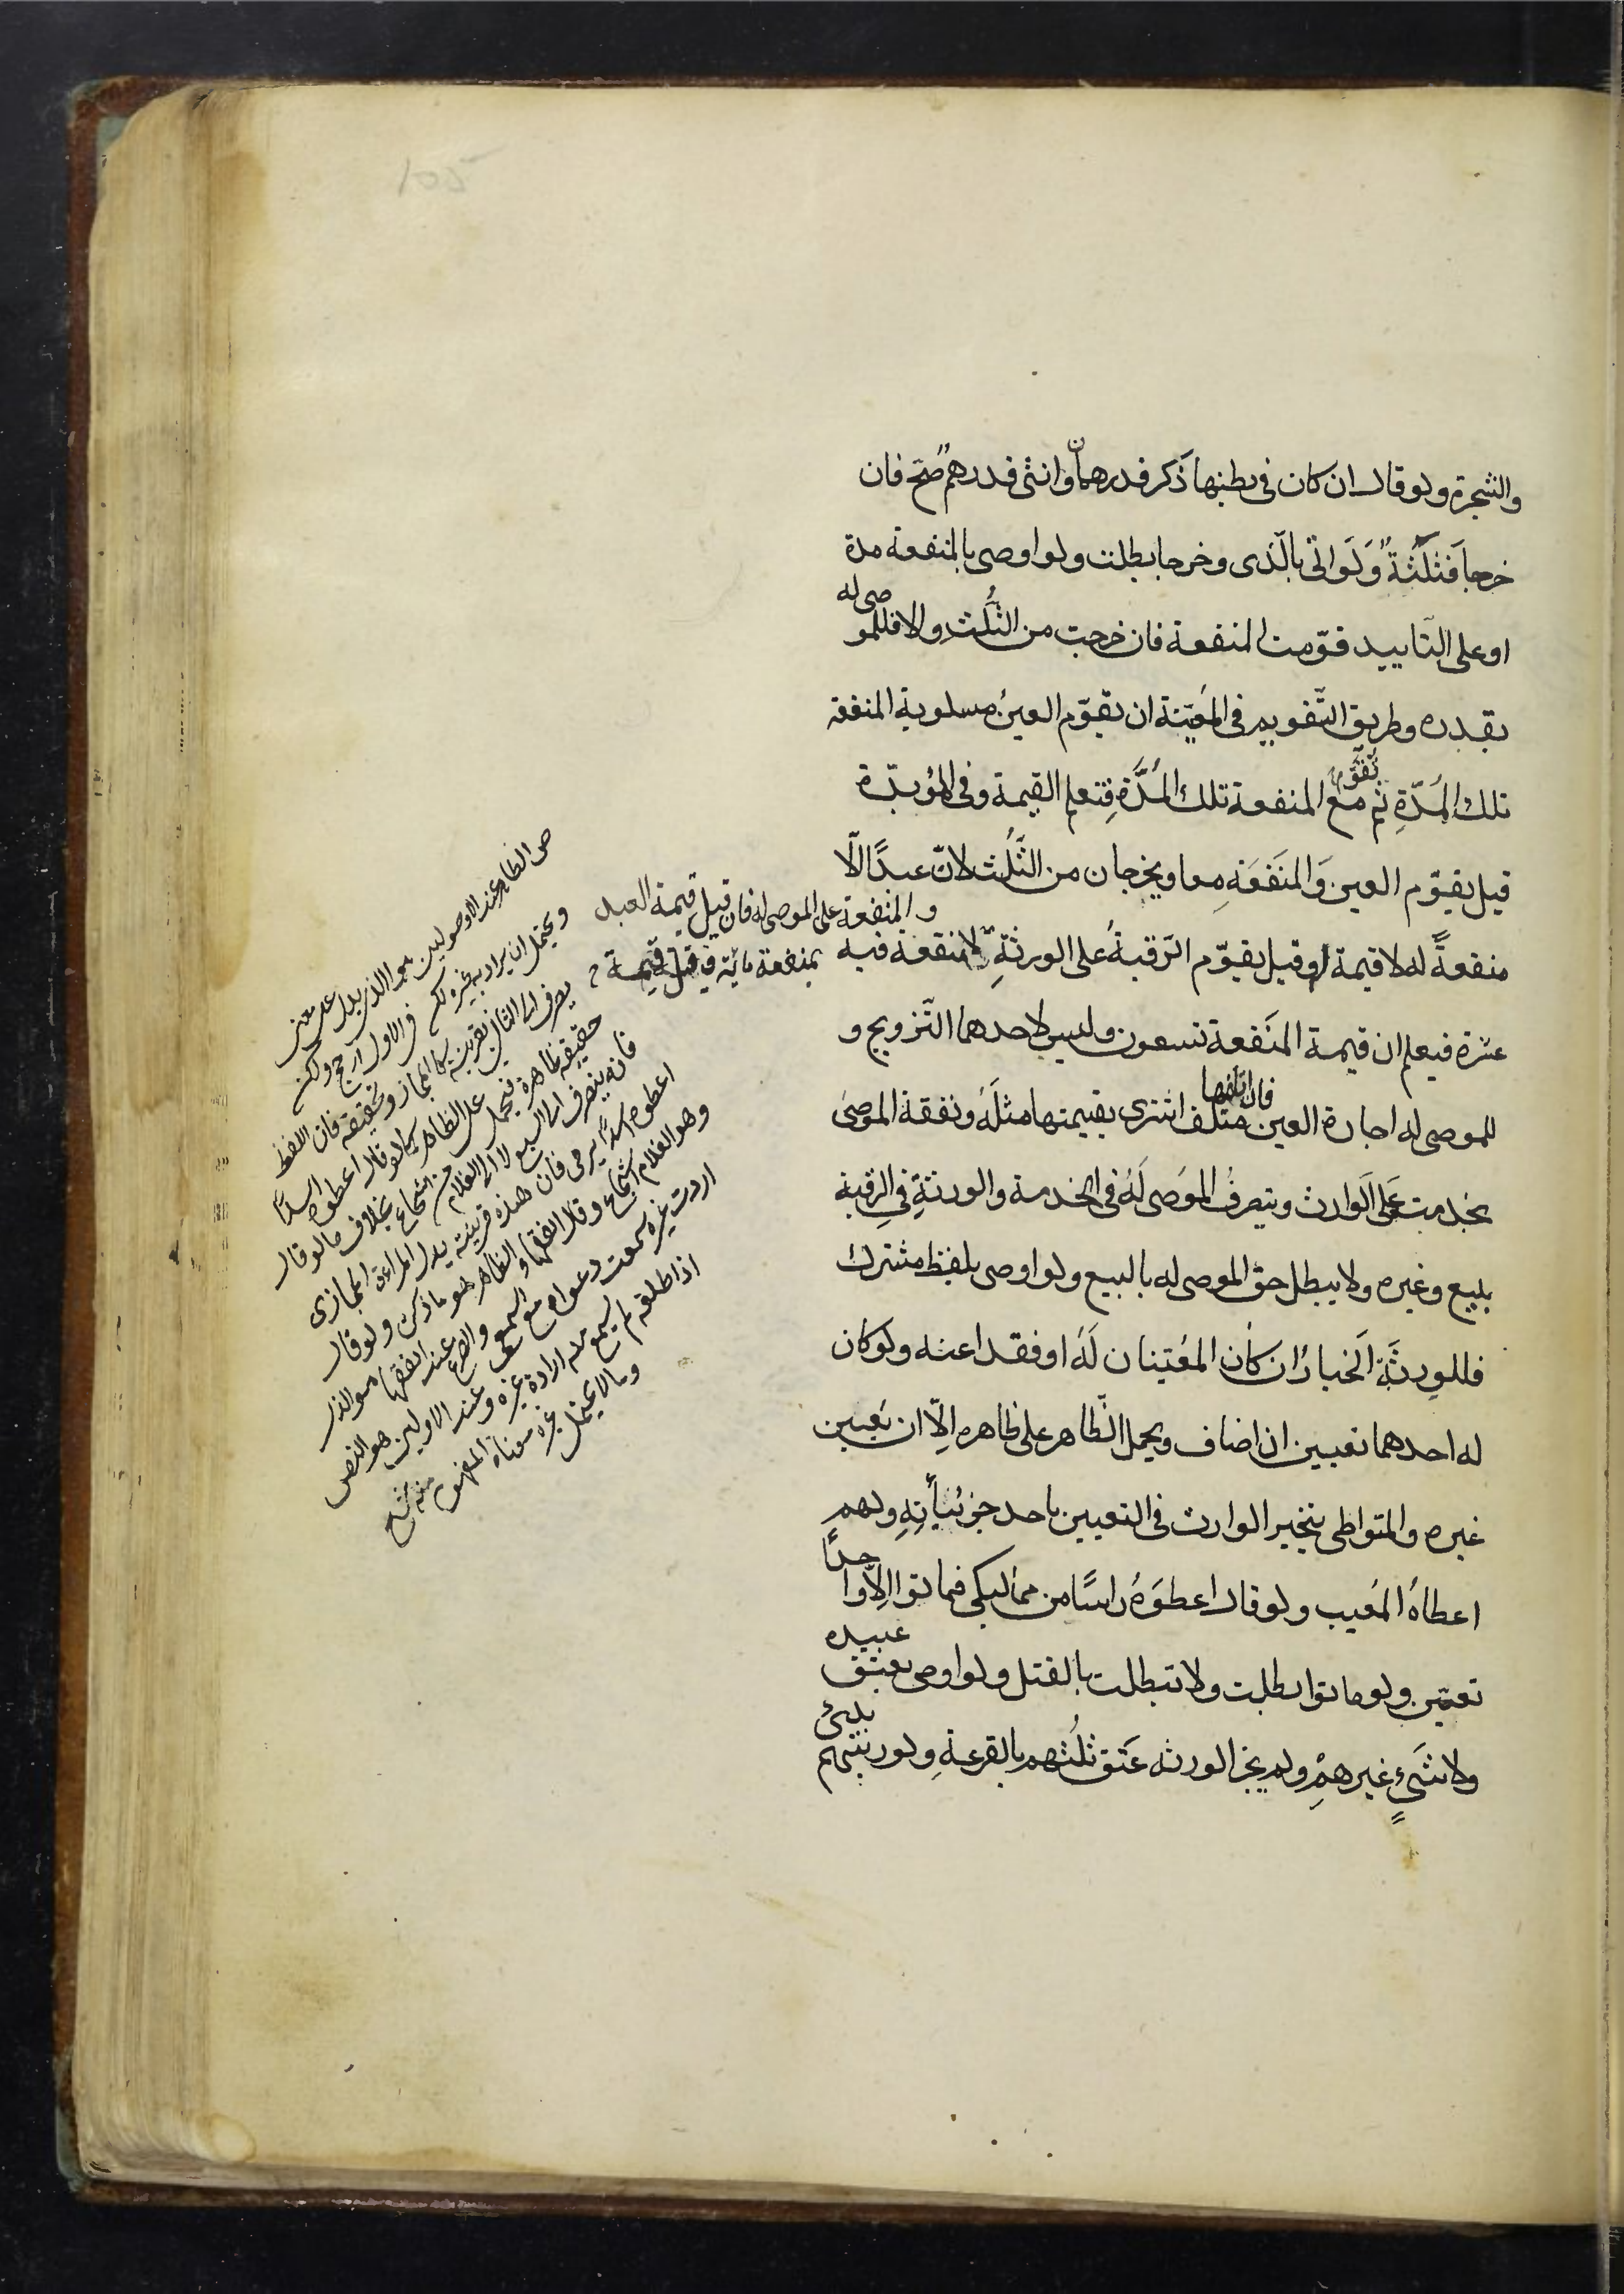 والشجرة ولو قال ان كان فى بطنها ذكر فدرهمان وانثى فدرهم صح فان
خرجا فثلثة ولو اتى بالذى وخرجا بطلت ولو اوصى بالمنفعة مدة
او على التابيد قومت المنفعة فان خرجت من الثلث والا فللموصى له
بقدره وطريق التقويم فى المعينة ان يقوم العين مسلوبة المنفعة
تلك المدة ثم تقوم مع المنفعة تلك المدة فتعلم القيمة وفى المؤبدة
قيل يقوم العين والمنفعة معا ويخرجان من الثلث لان عبدا لا
منفعة له لا قيمة له وقيل يقوم الرقبة على الورثة لا منفعة فيه
والمنفعة على الموصى له فان قيل قيمة العبد
بمنفعة مائة قيل قيمة
عشرة فيعلم ان قيمة المنفعة تسعون وليس لاحدهما التزويج و
للموصى له اجارة العين فان اتلفها متلف اشترى بقيمتها مثله ونفقة الموصى
بخدمته على الوارث ويتصرف الموصى له فى الخدمة والورثة فى الرقبة
ببيع وغيره ولا يبطل حق الموصى له بالبيع ولو اوصى بلفظ مشترك
فللورثة الخيار ان كان المعنيان له او فقد اعنه ولو كان
له احدهما تعيين ان اضاف ويحمل الظاهر على ظاهره الا ان يعين
غيره والمتواطى يتخير الوارث فى التعيين باحد جزئياته ولهم
اعطاه المعيب ولو قال اعطوه راسا من مماليكى فماتوا الا واحدا
تعين ولو ماتوا بطلت ولا تبطلت بالقتل ولو اوصى بعتق عبيده
ولا شىء غيرهم ولم يجز الورثة عتق ثلثهم بالقرعة ولو رتبهم بدىء
ص الظاهر عند الاصوليين هو الذى يدل على معنى
ويحتمل ان يراد به غيره لكن فى الاول ارجح
حقيقة ظاهرة فيحمل على الظاهر كما لو قال اعطوه اسدا
فانه ينصرف الى السبع لا الى الغلام بخلاف ما لو قال
اعطوه اسدا يرمى فان هذه قرينة يدل المجازى
وهو الغلام الشجاع وقال الفقهاء الظاهر هو ما ذكر ولو قال
اردت غيره سمعت دعواه
اذا اطلقه لم يسمع منه ارادة غيره وعند الاولين هو النص
وما لا يحتمل غير معناه المفهوم منه